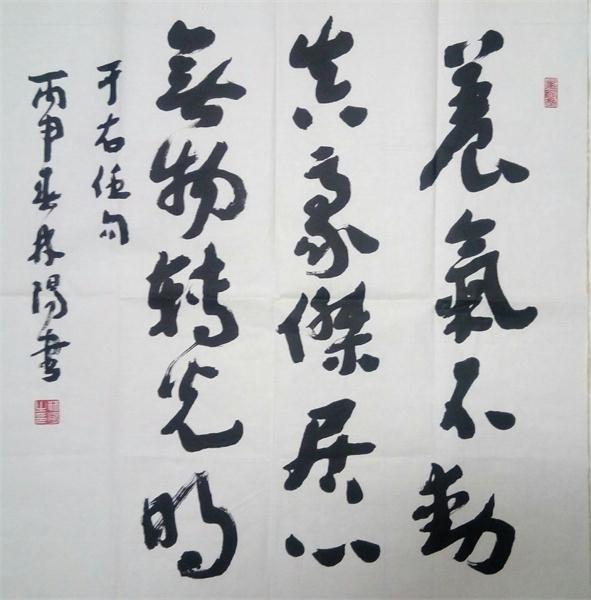 養氣不動
真豪傑居心
無物轉光明
于右任句
丙申春林陽書